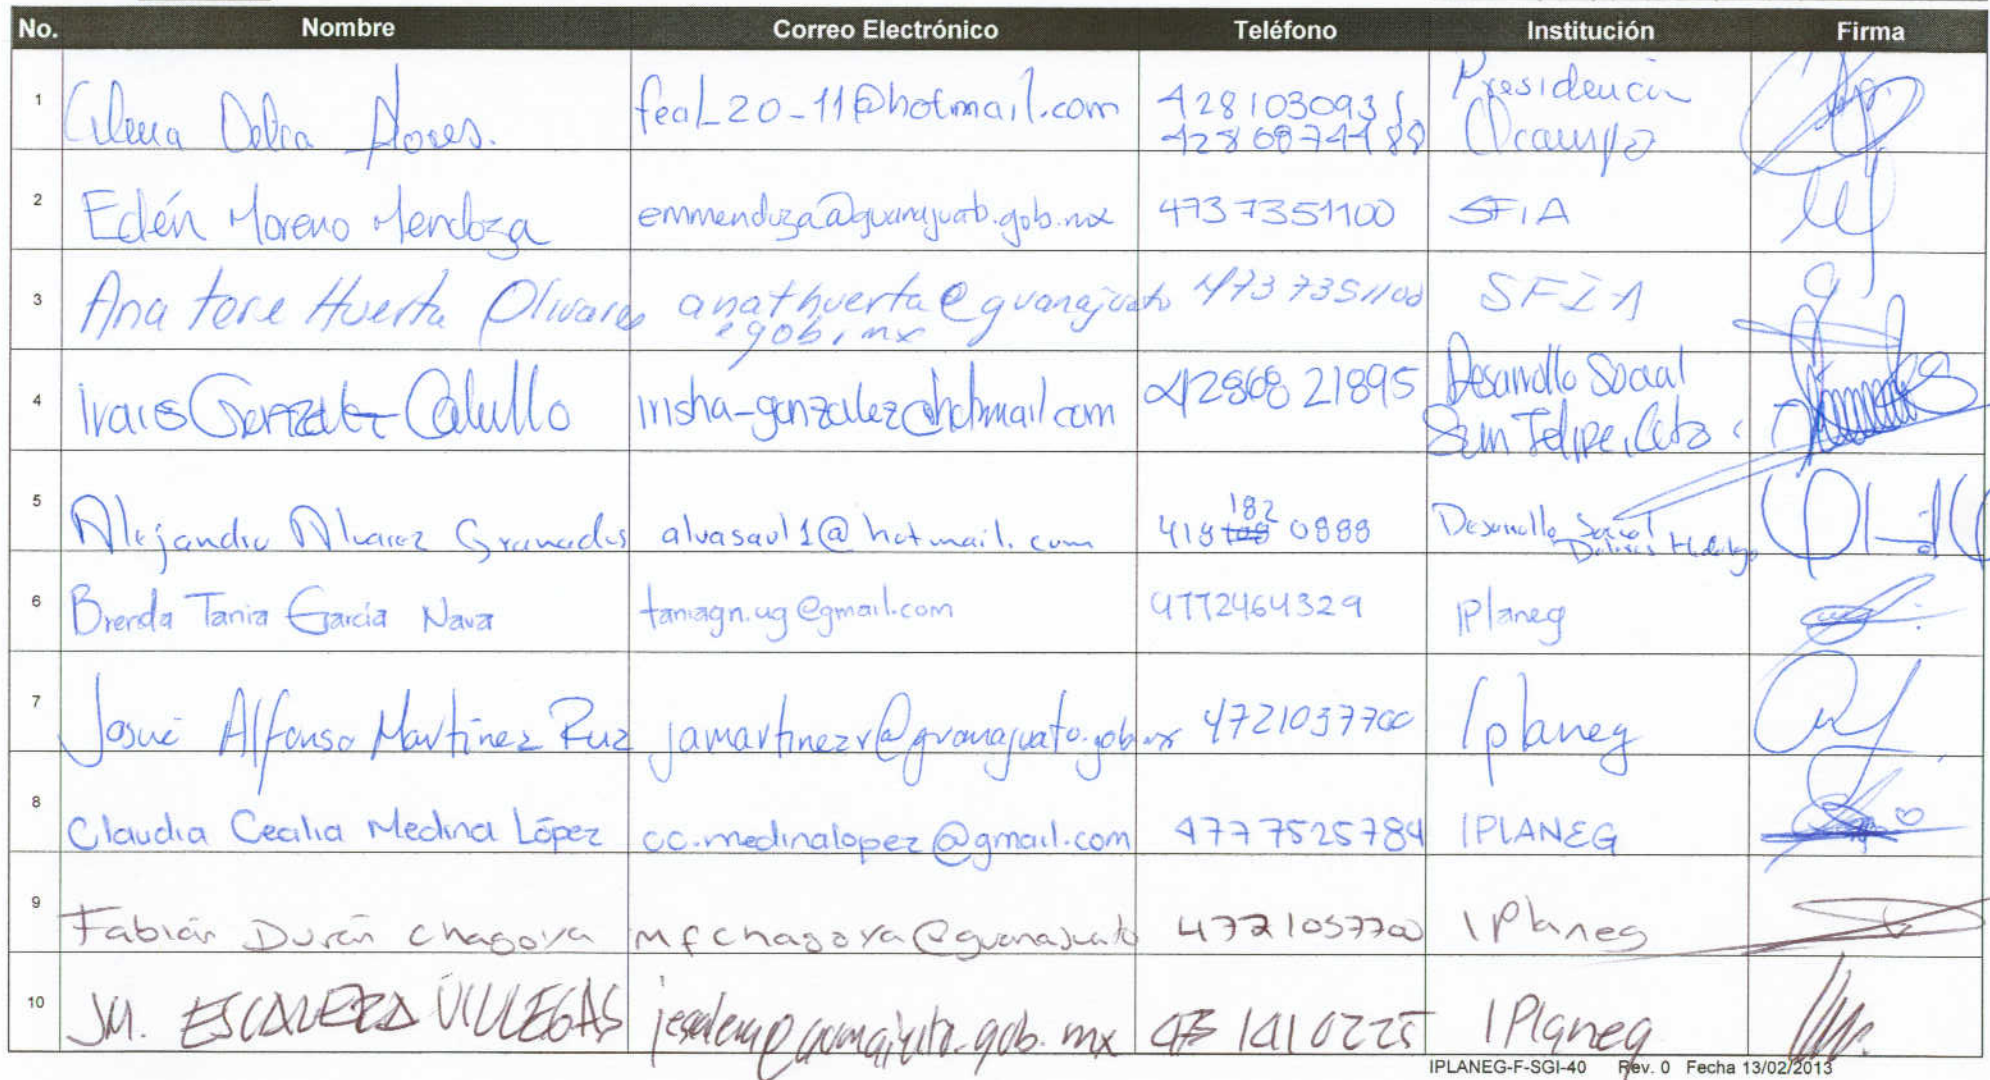 No. Nombre Correo Electrónico Teléfono Institución Firma
1 Delia Flores. feal_20-11@hotmail.com 4281030935 Presidencia
4286874488 Ocampo
2 Edén Moreno Mendoza emmendoza@guanajuato.gob.mx 4737351100 SFIA
3 Ana tere Huerta Olivares anathuerta@guanajuato 473 7351100 SFIA
.gob.mx
4 Ivais Gonzalez irisha-gonzalez@hotmail.com 42868 21895 Desarrollo Social
San Felipe, Gto.
182
5 Alejandro Alvarez Granados alvasaul1@hotmail.com 418 0888 Desarrollo Social
Dolores Hidalgo
6 Brenda Tania García Nava taniagn.ug@gmail.com 4772464329 Iplaneg
7 Josué Alfonso Martínez Ruz jamartinezr@guanajuato.gob.mx 4721037700 Iplaneg
8 Claudia Cecilia Medina López cc.medinalopez@gmail.com 4777525784 IPLANEG
9 Fabián Durán Chagoya mfchagoya@guanajuato 4721037700 IPlaneg
10 J.M. ESCALERA VILLEGAS jescalera@guanajuato.gob.mx 473 1410225 IPlaneg
IPLANEG-F-SGI-40 Rev. 0 Fecha 13/02/2013